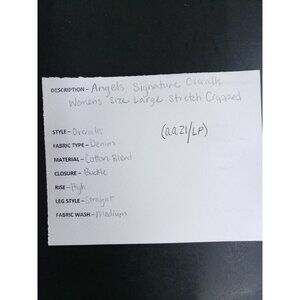 DESCRIPTION - Angels Signature Overalls
Womens Size Large Stretch Cropped
STYLE - Overalls
(QQ21/LP)
FABRIC TYPE - Denim
MATERIAL - Cotton Blend
CLOSURE - Buckle
RISE - High
LEG STYLE - Straight
FABRIC WASH - Medium